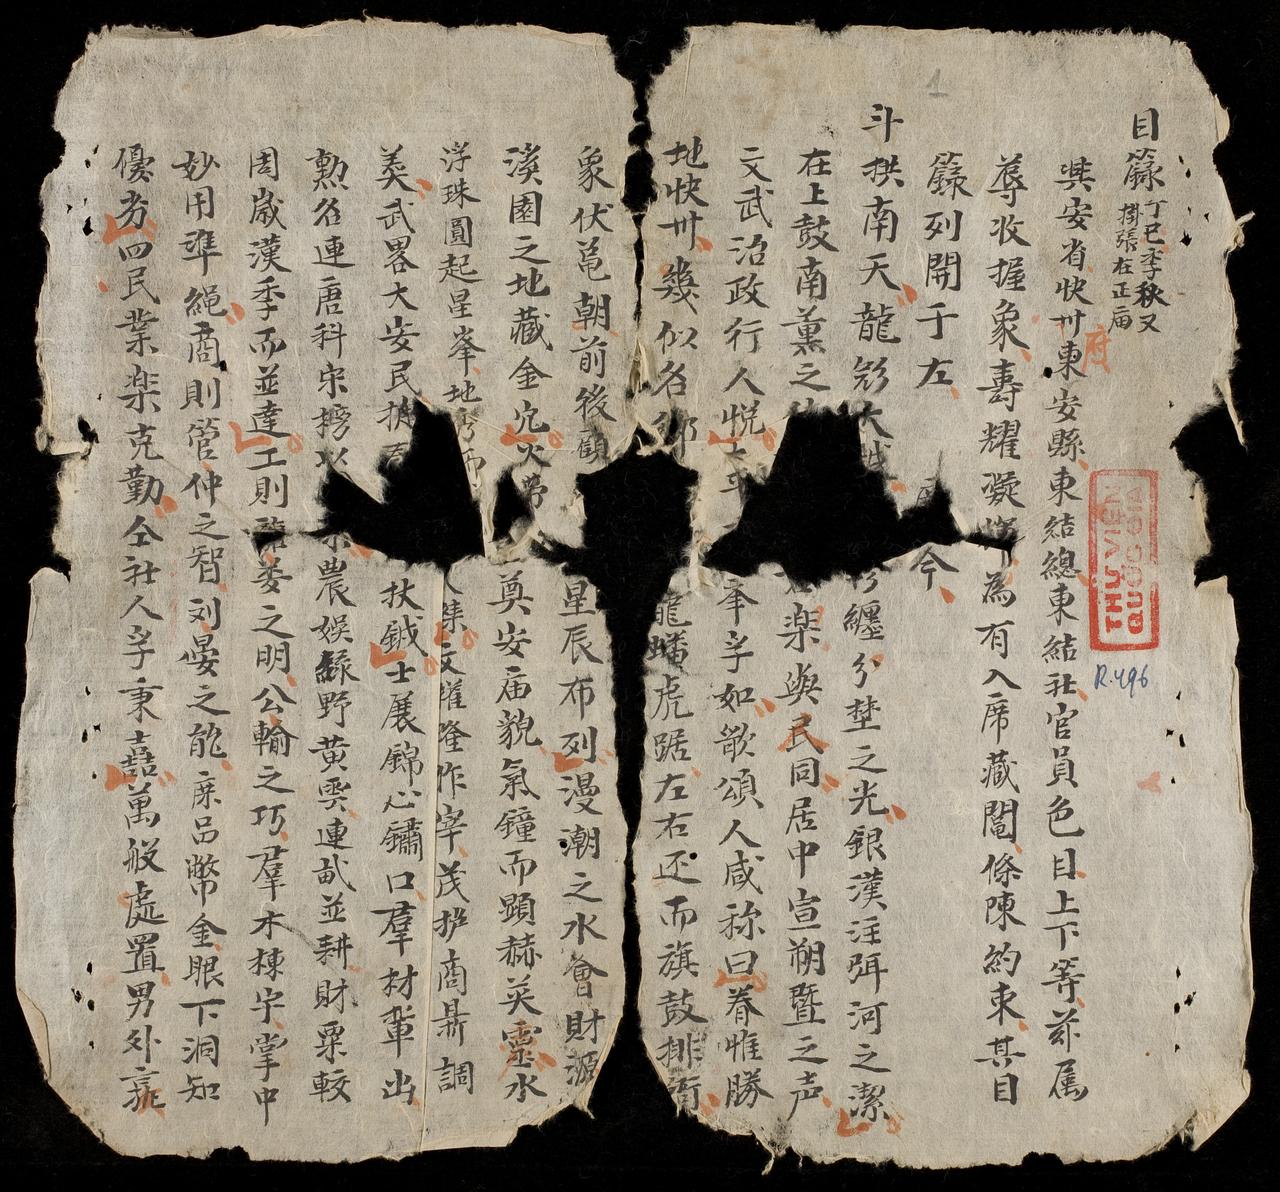 目籙丁巳季秋又
掛張在正庙
興安省快州府東安縣東結總東結社官員色目上下等茲属
辱收握象壽耀凝為有入席藏閣條陳約束其目
籙列開于左
今
斗拱南天龍彩大纏分埜之光銀漢汪弭河之潔
在上鼓南薰之楽與民同居中宣朔暨之声
文武治政行人悅奉孚如歌頌人咸称曰眷惟勝
地快州幾似名鄉龍蟠虎踞左右还而旗鼓排衙
象伏黽朝前後顧星辰布列漫潮之水會財源
溪園之地藏金穴火奠安庙貌氣鐘而顕赫英靈水
浮珠圓起星峯地集文耀隆作宰茂挔商鼎調
美武畧大安民扶鉞士展錦心鏽口羣材輩出
勲名連唐科宋榜以農娛緑野黄雲連畝並耕財粟較
周歲漢季而並達工則離娄之明公輸之巧羣木棟宇掌中
妙用準繩商則管仲之智刘晏之能庶品幣金眼下洞知
優劣四民業楽克勤仝社人孚秉囍萬般處置男外寵
THƯ VIỆN
QUỐC GIA
R.496
1